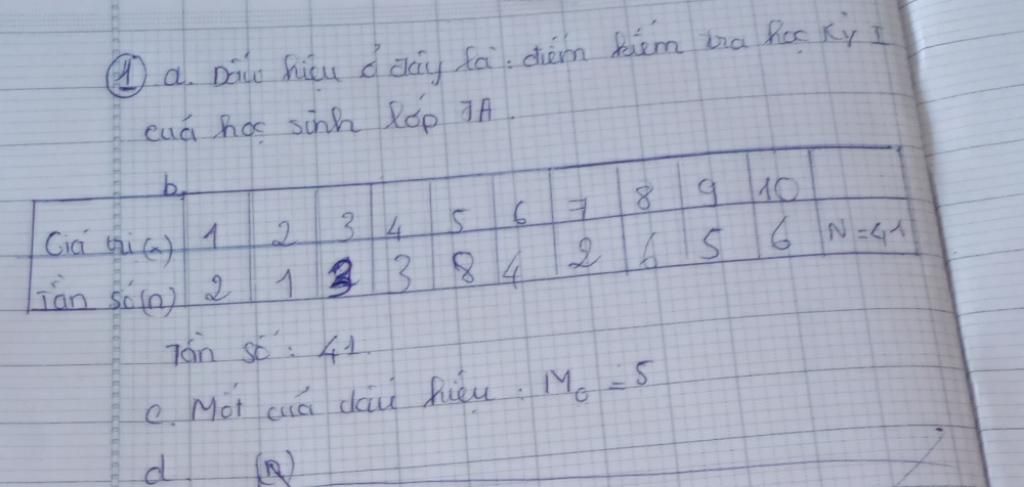 ① a. Dấu hiệu ở đây là : điểm kiểm tra học kỳ I
của học sinh lớp 7A.
b,
Giá trị (x) 1 2 3 4 5 6 7 8 9 10
Tần số (n) 2 1 3 8 4 2 6 5 6 N = 41
Tần số : 41.
c. Mốt của dấu hiệu : M₀ = 5
d (n)